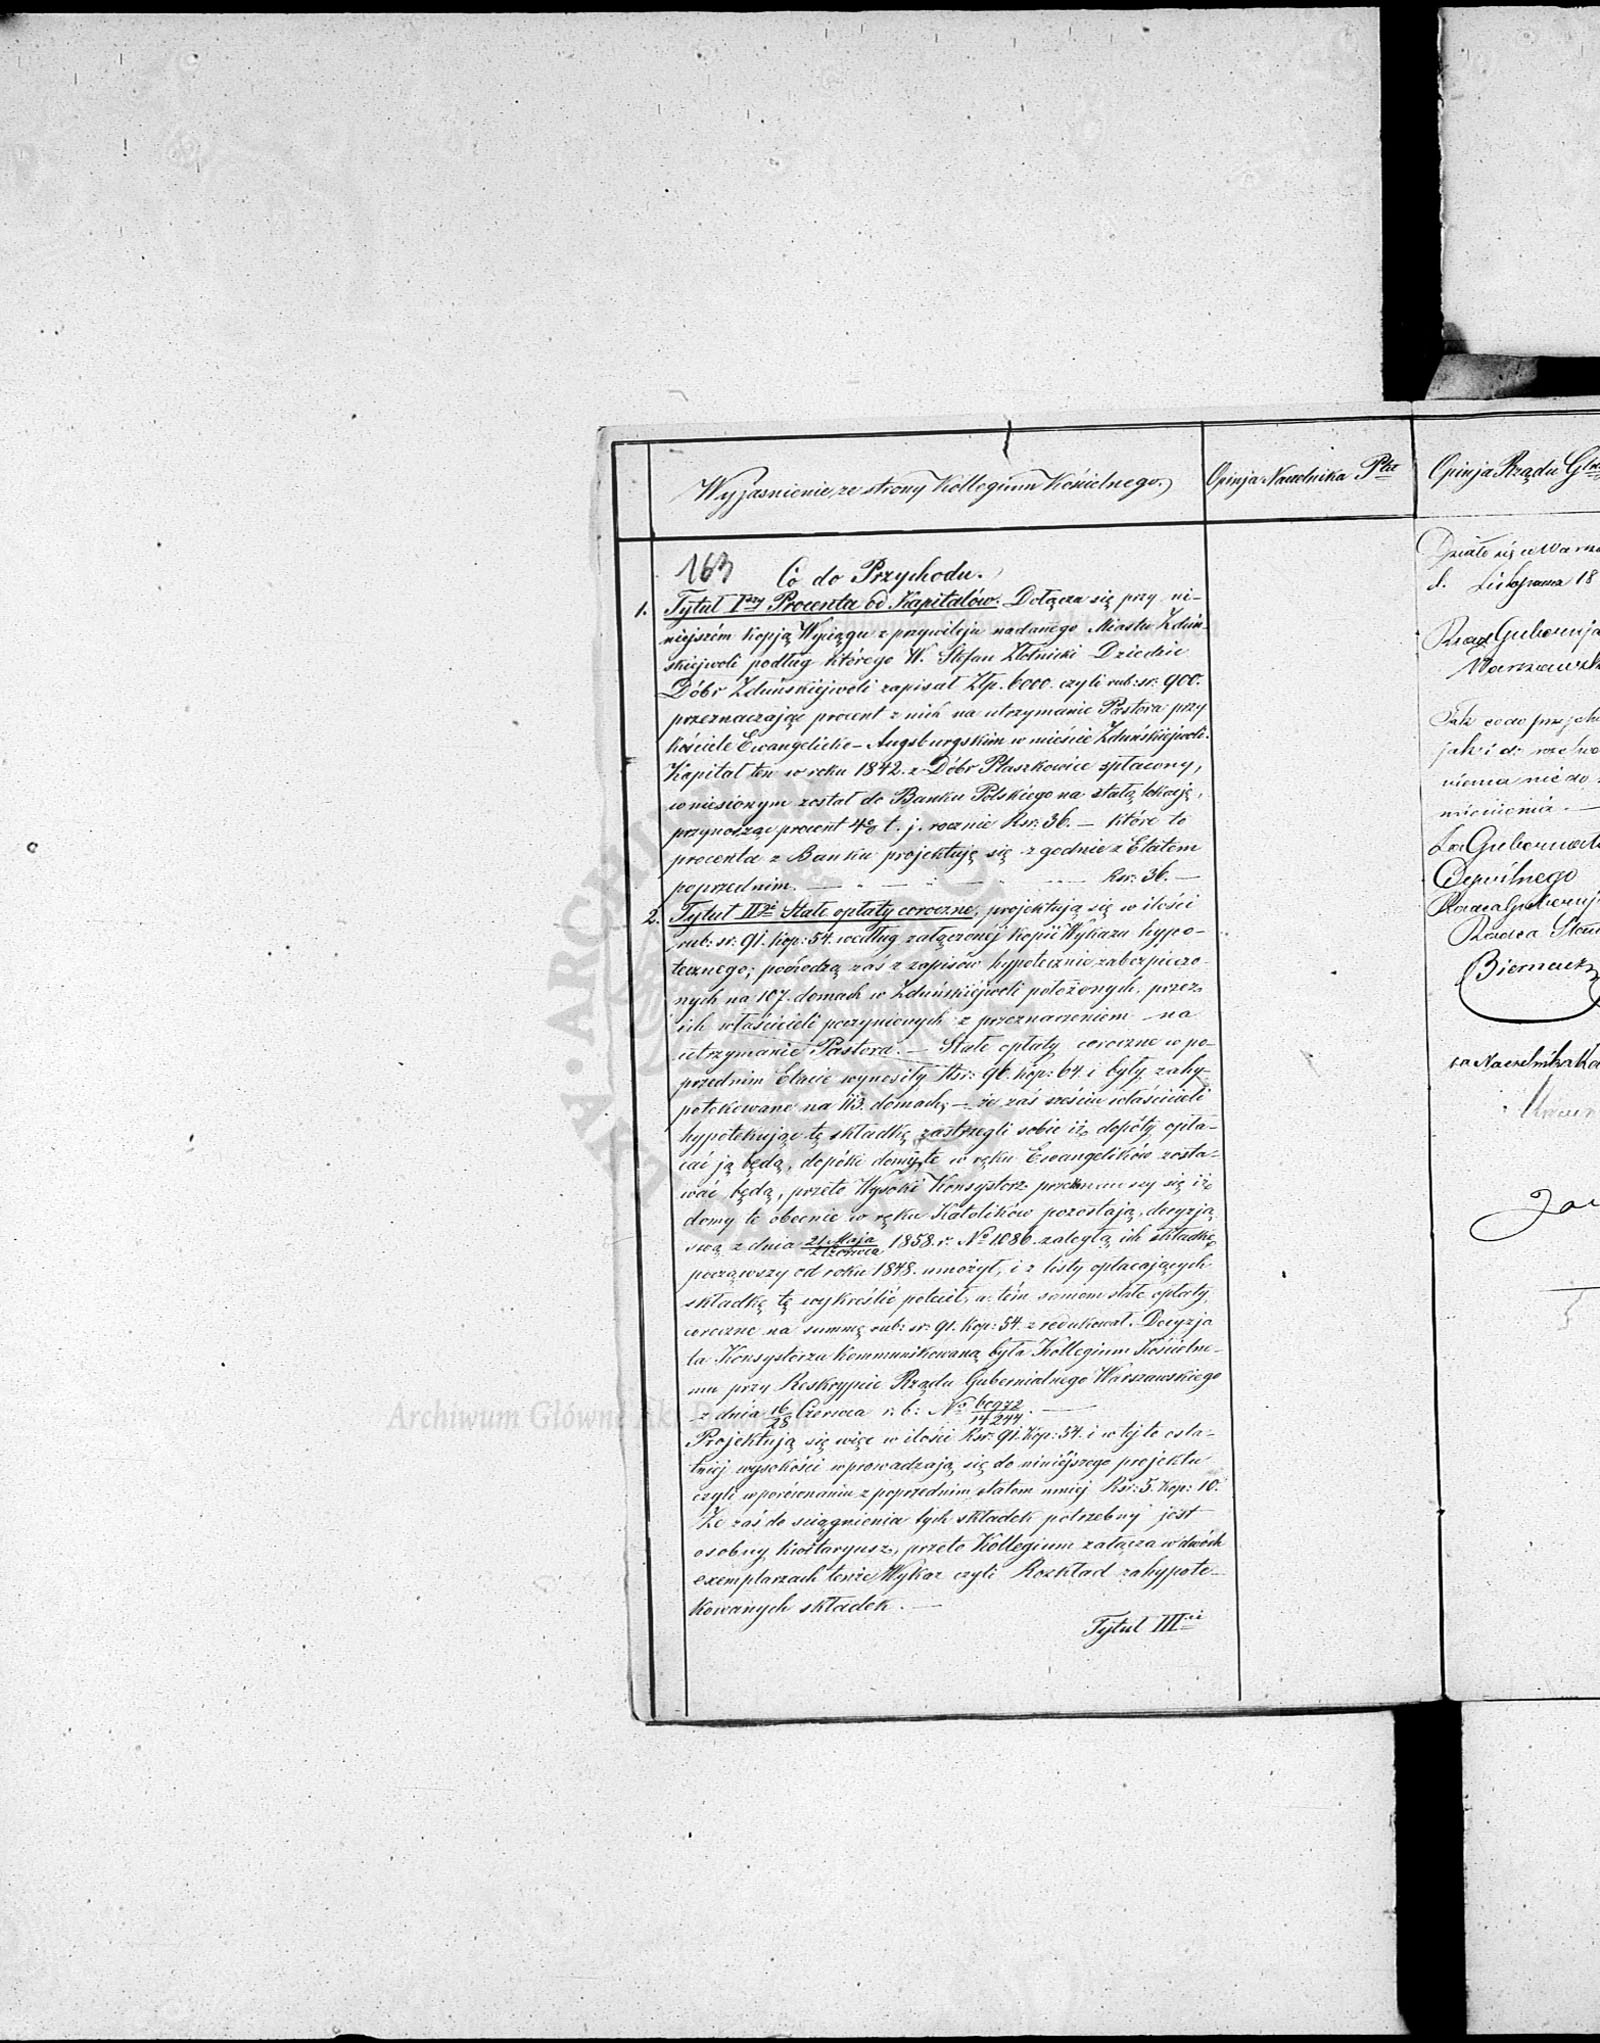 Wyjasnienie ze strony Kollegium Kościelnego.
Opinja Naczelnika Ptu
Opinja Rządu Gbr
163
Co do Przychodu.
1. Tytuł Iszy Procenta od Kapitałów. Dołącza się przy ni-
niejszém kopją Wyciągu z przywileju nadanego Miastu Zduń-
skiejwoli podług którego W. Stefan Złotnicki Dziedzic
Dóbr Zduńskiejwoli zapisał Złp. 6000. czyli rub: sr: 900.
przeznaczając procent z nich na utrzymanie Pastora przy
kościele Ewangelicko-Augsburgskim w mieście Zduńskiejwoli.
Kapitał ten w roku 1842. z Dóbr Ptaszkowice spłacony,
wniesionym został do Banku Polskiego na stałą lokację,
przynosząc procent 4% t. j. rocznie Rsr: 36. — które to
procenta z Banku projektuję się zgodnie z Etatem
poprzednim. — " — " — Rsr: 36. —
2. Tytuł IIgi Stałe opłaty coroczne, projektują się w ilości
rub: sr: 91. kop: 54. według załączonéj kopii Wykazu hypo-
tecznego; pochodzą zaś z zapisów hypotecznie zabezpieczo-
nych na 107. domach w Zduńskiéjwoli położonych, przez
ich właścicieli poczynionych z przeznaczeniem na
utrzymanie Pastora. — Stałe opłaty coroczne w po-
przednim Etacie wynosiły Rsr: 96. kop: 64. i były zahy-
potekowane na 113. domach; — że zaś sześciu właścicieli
hypotekując tę składkę zastrzegli sobie iż dopóty opła-
cać ją będą, dopóki domy te w ręku Ewangelików zosta-
wać będą, przeto Wysoki Konsystorz przekonawszy się iż
domy te obecnie w ręku Katolików pozostają, decyzją
swą z dnia 21 Maja/2 Czerwca 1858. r. No 1086. zaległą ich składkę
począwszy od roku 1848. umożył, i z listy opłacających
składkę tę wykreślić polecił, a tém samem stałe opłaty
coroczne na summę rub: sr: 91. kop: 54. zredukował. Decyzja
ta Konsystorza kommunikowaną była Kollegium Kościelne-
mu przy Reskrypcie Rządu Gubernialnego Warszawskiego
z dnia 16/28 Czerwca r: b: No 60972/14244. —
Projektują się więc w ilości Rsr: 91. Kop: 54. i w tej to osta-
tniej wysokości wprowadzają się do niniéjszego projektu
czyli w porównaniu z poprzednim etatem mniej Rsr: 5. kop: 10.
Że zaś do ściągnienia tych składek potrzebny jest
osobny kwitaryusz, przeto Kollegium załącza w dwóch
exemplarzach tenże Wykaz czyli Rozkład zahypote-
kowanych składek. —
Tytuł IIIci
Działo się w Warsz
d. Listopada 18
Rząd Gubernja
Warszawsk
Tak co do przycho
jak i do rozcho
niema nic do
mienienia. —
Gubernat
Cywilnego
Radca Stan
Biernack
za Naczelnika
Archiwum Główne Akt Dawnych